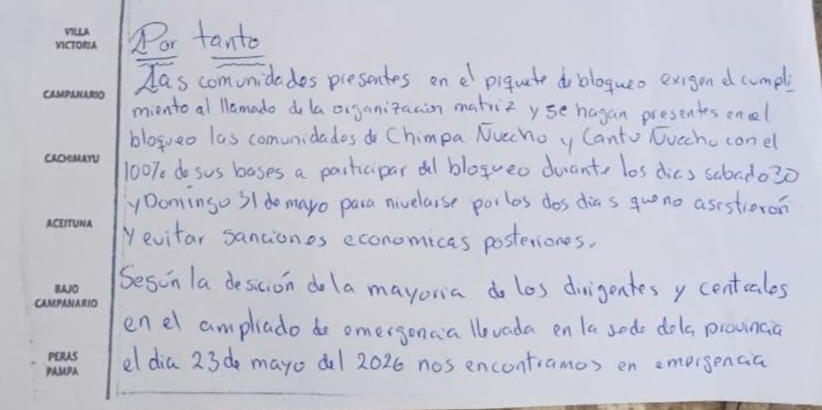 VILLA
VICTORIA
Por tanto
Las comunidades presentes en el piquete de bloqueo exigen el cumpli
CAMPANARIO
miento al llamado de la organización matriz y se hagan presentes en el
bloqueo las comunidades de Chimpa Ñuccho y Canto Ñuccho con el
CACHIMAYU
100% de sus bases a participar del bloqueo durante los dias sabado 30
y Domingo 31 de mayo para nivelarse por los dos dias que no asistierón
ACEITUNA
y evitar sanciones economicas posteriores.
BAJO
CAMPANARIO
Según la desición de la mayoria de los dirigentes y centrales
en el ampliado de emergencia llevada en la sede de la provincia
PERAS
PAMPA
el dia 23 de mayo del 2026 nos encontramos en emergencia